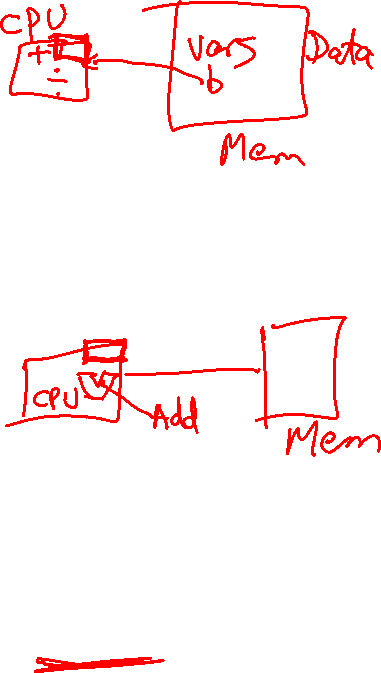 CPU
+
÷
vars
b
Data
Mem
CPU
Add
Mem